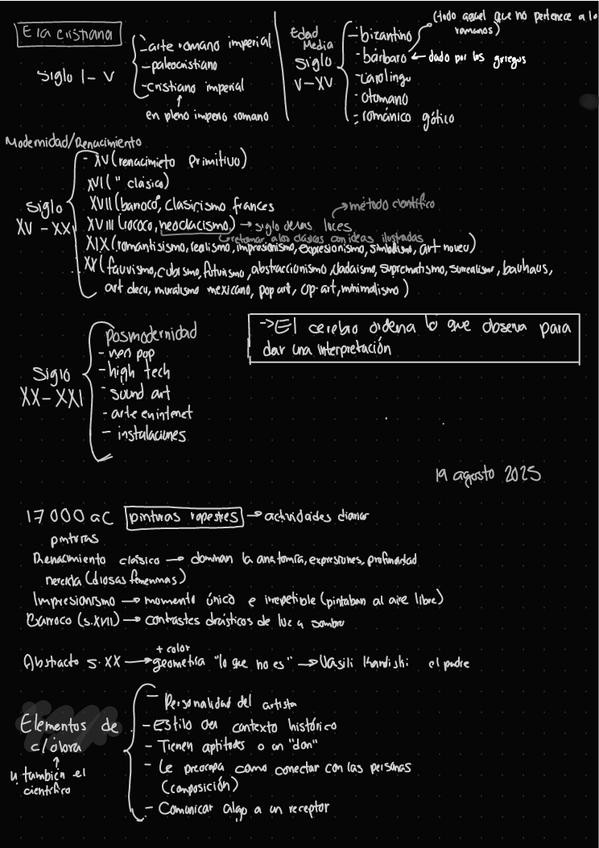 Era cristiana
Siglo I - V
- arte romano imperial
- paleocristiano
- cristiano imperial
en pleno imperio romano
Edad Media
Siglo V - XV
- bizantino
(todo aquel que no pertenece a lo romanos)
- bárbaro ← dado por los griegos
- carolingio
- otomano
- románico gótico
Modernidad/Renacimiento
Siglo XV - XX
- XV (renacimiento primitivo)
XVI (" clásico)
XVII (barroco, clasicismo frances
→ método científico
XVIII (rococo, neoclacismo) → siglo de las luces
retomar a los clásicos con ideas ilustradas
XIX (romantisismo, realismo, impresionismo, expresionismo, simbolismo, art noveu)
XX (fauvismo, cubismo, futurismo, abstraccionismo, dadaismo, suprematismo, surrealismo, bauhaus,
art decu, muralismo mexicano, pop art, op-art, minimalismo)
Siglo XX - XXI
posmodernidad
- neo pop
- high tech
- sound art
- arte en internet
- instalaciones
→ El cerebro ordena lo que observa para
dar una interpretación
19 agosto 2025
17 000 aC pinturas rupestres → actividades
pinturas
Renacimiento clásico → dominan la anatomía, expresiones, profundidad
(diosas femeninas)
Impresionismo → momento único e irrepetible (pintaban al aire libre)
Barroco (s.XVII) → contrastes drásticos de luz a sombra
+ color
Abstracto s. XX → geometrica "lo que no es" → Vasili el padre
Elementos de
c/obra
también el
científico
- Personalidad del artista
- Estilo del contexto histórico
- Tienen aptitudes o un "don"
- Le preocupa como conectar con las personas
(composición)
- Comunicar algo a un receptor